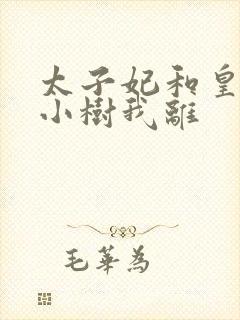 太子妃和皇
小樹我離
毛華為